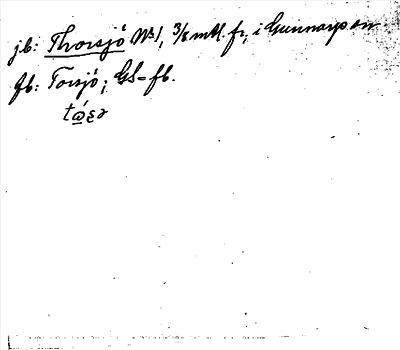 jb: Thorsjö № 1, 3/8 mtl. fr, i Gunnarps sn
fb: Torsjö; GS-fb.